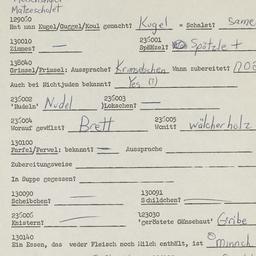 Matzeschalet
129060
Hat man Kugel/Guggel/Koul gemacht? Kugel = Schalet? same
130010 236001
Zimmes? — Spätzel? Spätzle +
138040
Grimsel/Frimsel: Aussprache? Krimselchen Wann zubereitet?
Auch bei Nichtjuden bekannt? Yes (?)
236002 236003
'Nudeln' Nudel )Lokschen? —
236004 236005
Worauf gewälzt? Brett Womit? wälcherholz
130100
Farfel/Fervel: bekannt? — Aussprache
Zubereitungsweise
In Suppe gegessen?
130090 130091
Scheibchen? Schildchen?
236006 123030
Knistern? 'geröstete Gänsehaut' Gribe
130140
Ein Essen, das weder Fleisch noch Milch enthält, ist minnich